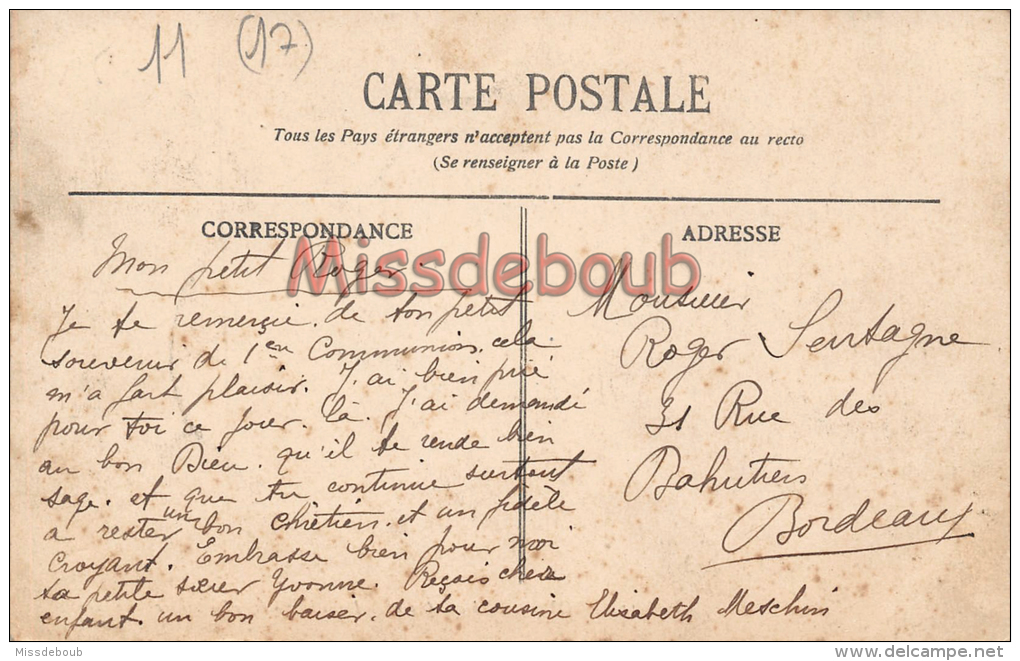 11 (17)
CARTE POSTALE
Tous les Pays étrangers n'acceptent pas la Correspondance au recto
(Se renseigner à la Poste)
CORRESPONDANCE
Missdeboub
Mon petit Roger
Je te remercie de ton petit
souvenir de 1ere Communion, cela
m'a fait plaisir. J'ai bien prié
pour toi ce jour là. J'ai demandé
au bon Dieu qu'il te rende bien
sage. et que tu continue surtout
a rester un bon chrétien et un fidèle
croyant. Embrasse bien pour moi
ta petite sœur Yvonne. Reçois cher
enfant un bon baiser de ta cousine Elisabeth Meschin
ADRESSE
Monsieur
Roger Sentagne
31 Rue des
Bahutiers
Bordeaux
Missdeboub
delcampe.net